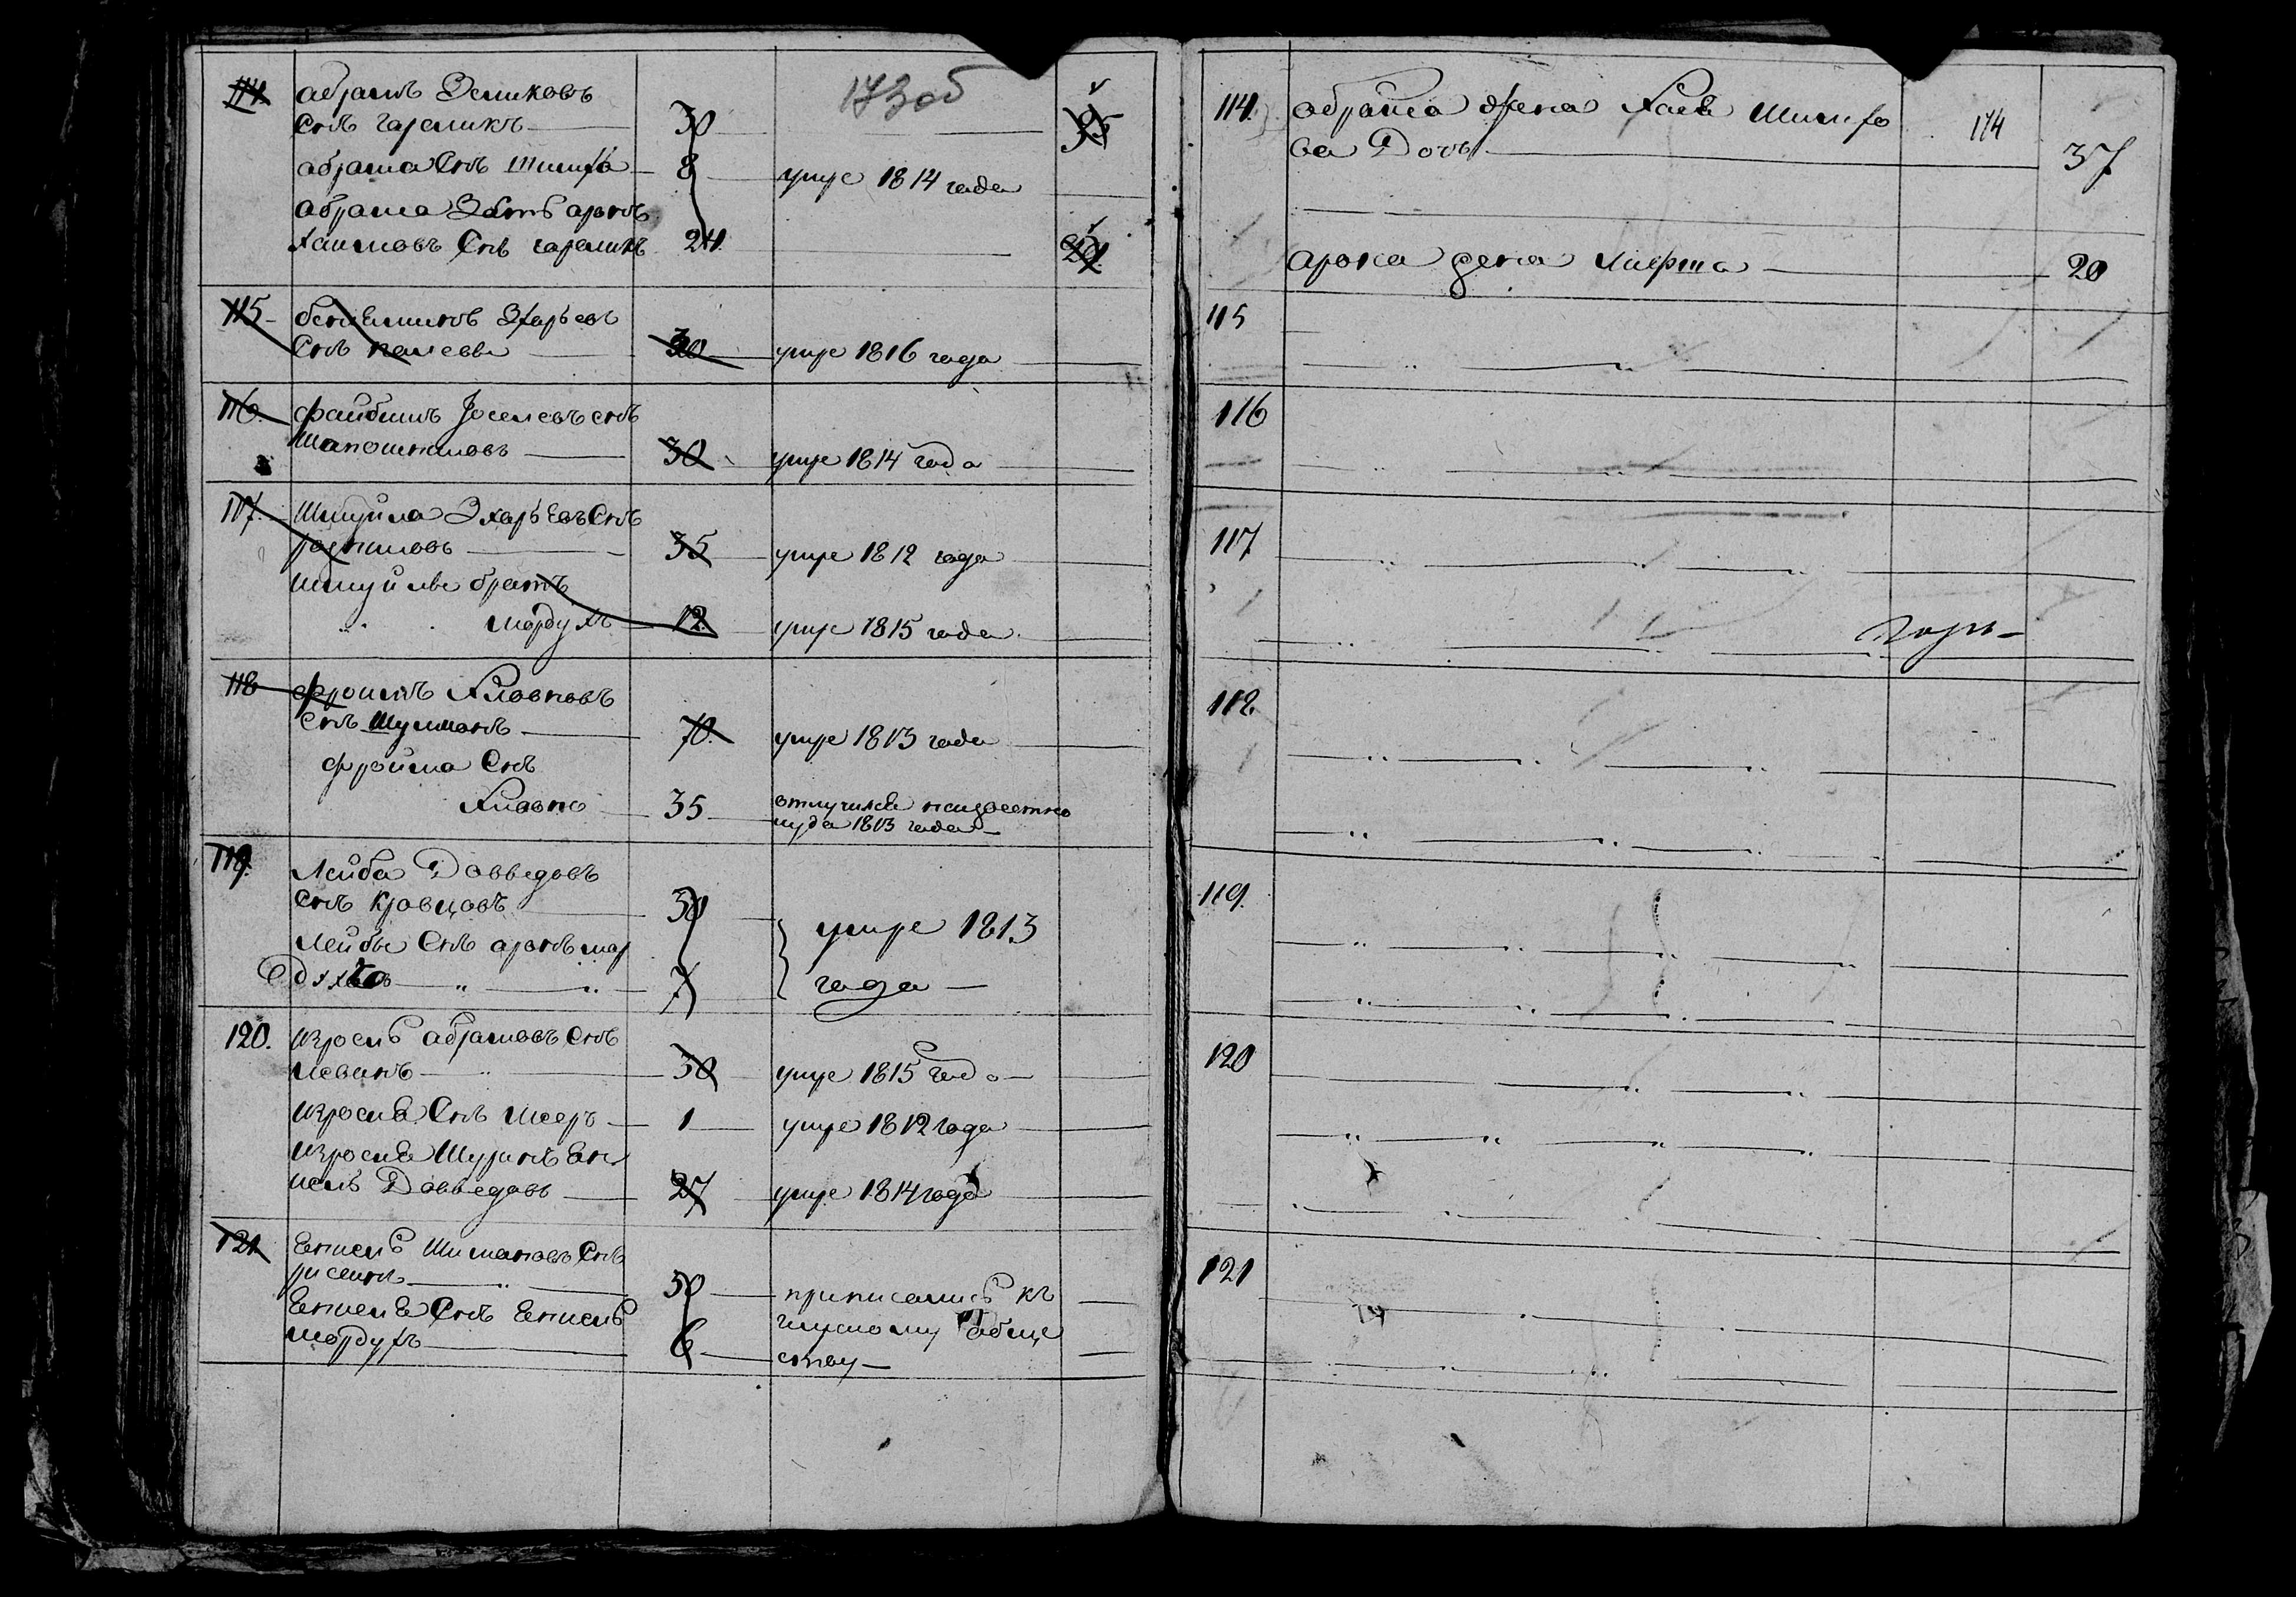 173 об
114. абрамъ Зеликовъ
Сынъ гареликъ 30 35
абрама Сынъ Шимха 8 умре 1814 года
абрама Зять аронъ
Хаимовъ Сынъ гареликъ 24. 29
115. бениеминъ Захарьевъ
Сынъ 30 умре 1816 года
116. файбишъ Иоселевъ сынъ
Шапошниковъ 30 умре 1814 года
117. Шмуйла Захарьевъ Сынъ
35 умре 1812 года
Шмуйлы братъ
мордухъ 12 умре 1815 года
118 фроимъ Хлавновъ
Сынъ Шульманъ 70. умре 1813 года
фроима Сынъ
Хлавно 35 отлучился неизвестно
куда 1813 года
119. Лейба Доввидовъ
Сынъ Кравцовъ 50 умре 1813
Лейбы Сынъ аронъ мор
духъ 7 года
120. израель абрамовъ Сынъ
левинъ 30 умре 1815 года
израеля Сынъ меер 1 умре 1812 года
израеля Шуринъ Ен
кель Доввидовъ 27 умре 1814 года
121. Енкель Шимановъ Сынъ
50 приписались къ
Енкеля Сынъ Енкель
глускому обще
мордухъ 6 ству
174
114. абрама жена Хаева Шимхо
ва Дочь 37
арона жена Мифша 20
115
116
117
118.
119.
120
121